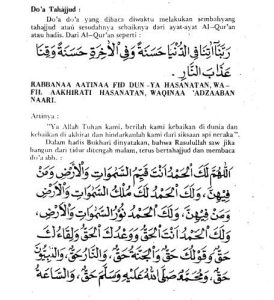 Do'a Tahajjud :
Do'a do'a yang dibaca diwaktu melakukan sembahyang
tahajjud atau sesudahnya sebaiknya dari ayat-ayat Al-Qur'an
atau hadis. Dari Al-Qur'an seperti :
رَبَّنَا آتِنَا فِي الدُّنْيَا حَسَنَةً وَفِي الْآخِرَةِ حَسَنَةً وَقِنَا
عَذَابَ النَّارِ.
RABBANAA AATINAA FID DUN-YA HASANATAN, WA-
FIL AAKHIRATI HASANATAN, WAQINAA 'ADZAABAN
NAARI.
Artinya :
"Ya Allah Tuhan kami, berilah kami kebaikan di dunia dan
kebaikan di akhirat dan hindarkanlah kami dari siksaan api neraka".
Dalam hadis Bukhari dinyatakan, bahwa Rasulullah saw jika
bangun dari tidur ditengah malam, terus bertahajjud dan membaca
do'a abh. :
اَللّٰهُمَّ لَكَ الْحَمْدُ أَنْتَ قَيِّمُ السَّمَاوَاتِ وَالْأَرْضِ وَمَنْ
فِيْهِنَّ، وَلَكَ الْحَمْدُ نُوْرُ السَّمَاوَاتِ وَالْأَرْضِ وَمَنْ
فِيْهِنَّ، وَلَكَ الْحَمْدُ أَنْتَ مَلِكُ السَّمَاوَاتِ وَالْأَرْضِ،
وَلَكَ الْحَمْدُ أَنْتَ الْحَقُّ وَوَعْدُكَ حَقٌّ وَلِقَاءُكَ
حَقٌّ وَقَوْلُكَ حَقٌّ وَالْجَنَّةُ حَقٌّ، وَالنَّارُ حَقٌّ، وَالنَّبِيُّوْنَ
حَقٌّ، وَمُحَمَّدٌ صَلَّى اللّٰهُ عَلَيْهِ وَسَلَّمَ حَقٌّ، وَالسَّاعَةُ